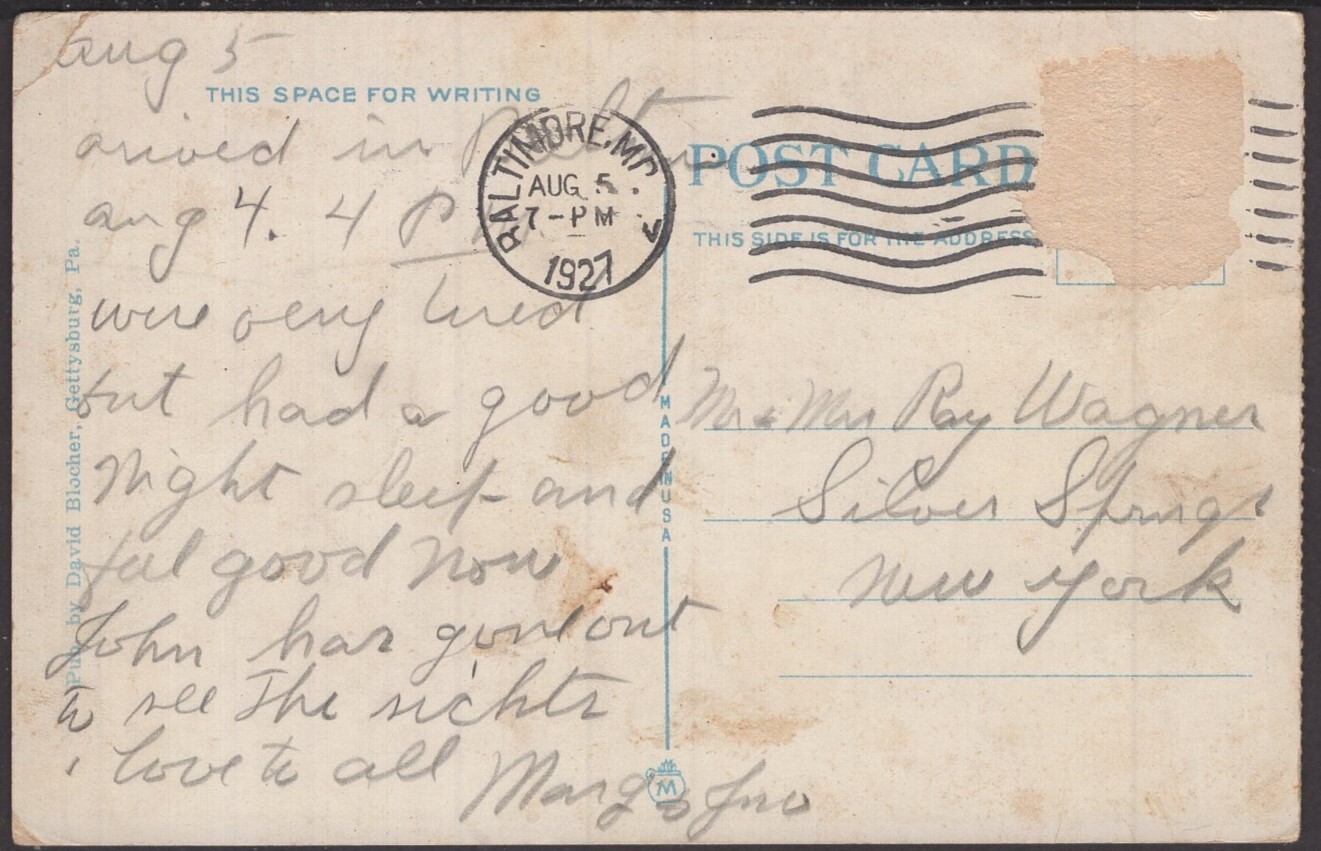 Aug 5
THIS SPACE FOR WRITING
arived in Balto
aug 4. 4 P
were very tired
but had a good
Night sleep and
feal good now
John has gone out
to see the sichts
love to all
Marg & Jno
Pub. by David Blocher, Gettysburg, Pa.
BALTIMORE, MD
AUG 5
7-PM
1927
POST CARD
THIS SIDE IS FOR THE ADDRESS
MADE IN USA
M
Mr & Mrs Ray Wagner
Silver Springs
New York